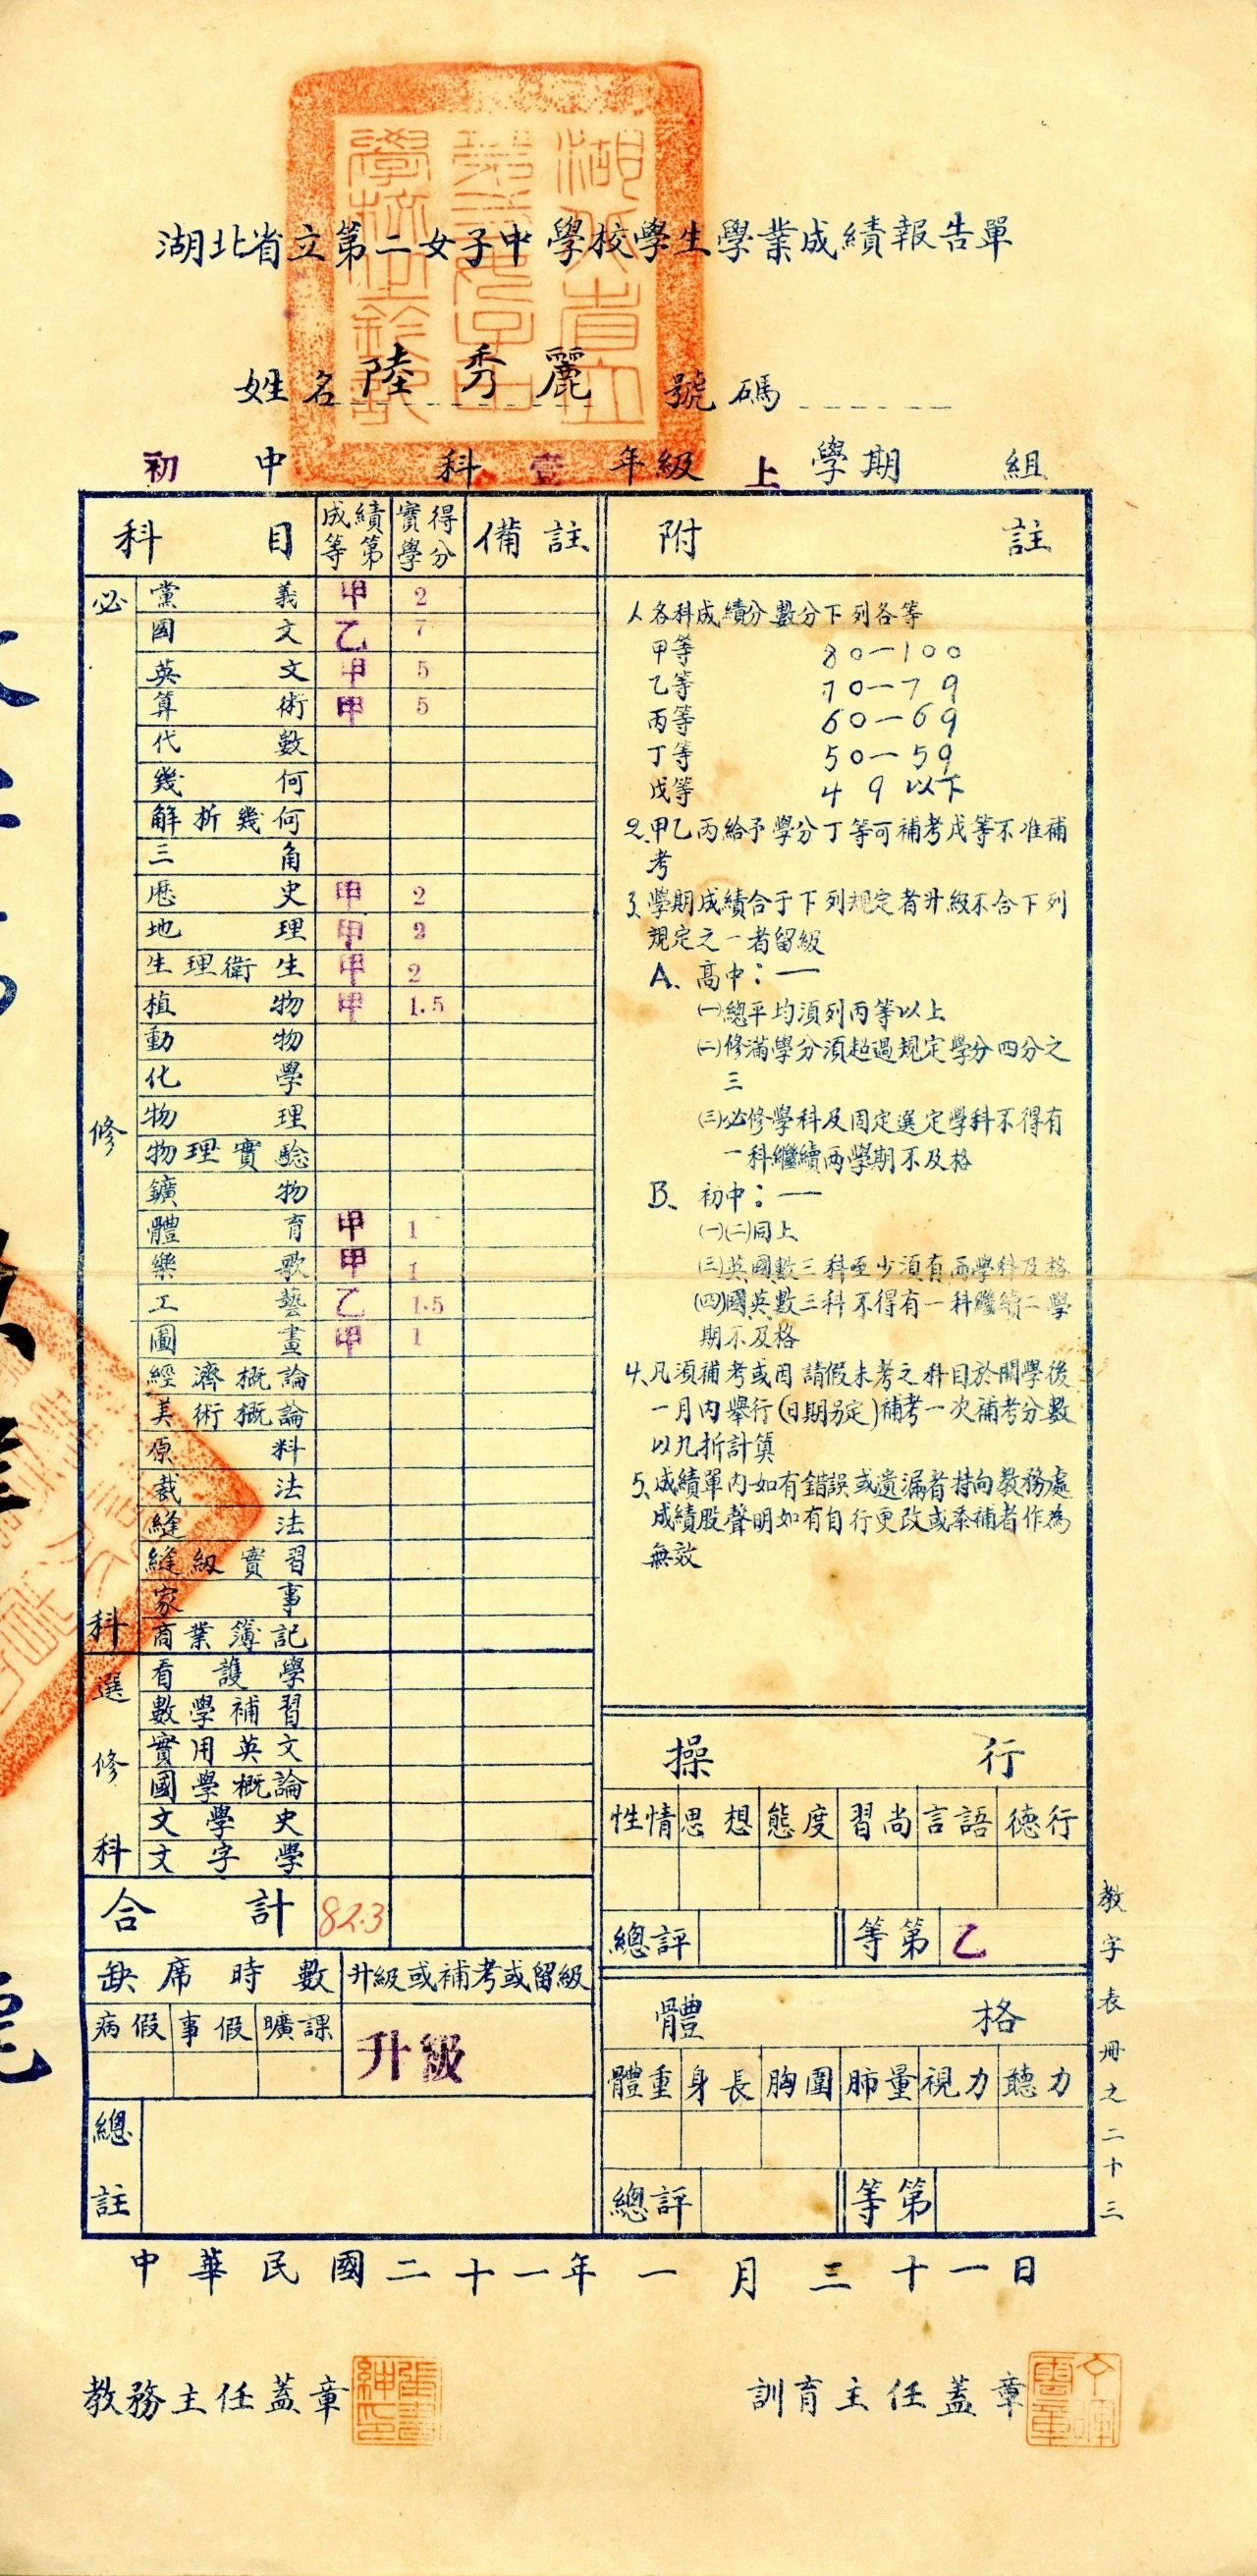 湖北省立第二女子中學校學生學業成績報告單
姓名 陸秀麗 號碼
初中 科 壹 年級 上 學期 組
科目 成績等第 實得學分 備註
必修科
黨義 甲 2
國文 乙 7
英文 甲 5
算術 甲 5
代數
幾何
解析幾何
三角
歷史 甲 2
地理 甲 2
生理衛生 甲 2
植物 甲 1.5
動物
化學
物理
物理實驗
鑛物
體育 甲 1
樂歌 甲 1
工藝 乙 1.5
圖畫 甲 1
經濟概論
美術概論
原料
裁法
縫法
縫紉實習
家事
商業簿記
選修科
看護學
數學補習
實用英文
國學概論
文學史
文字學
合計 82.3
缺席時數 升級或補考或留級
病假 事假 曠課
升級
總註
附註
1、各科成績分數分下列各等
甲等 80—100
乙等 70—79
丙等 60—69
丁等 50—59
戊等 49以下
2、甲乙丙給予學分丁等可補考戊等不准補
考
3、學期成績合于下列規定者升級不合下列
規定之一者留級
A、高中：—
㈠總平均須列丙等以上
㈡修滿學分須超過規定學分四分之
三
㈢必修學科及固定選定學科不得有
一科繼續兩學期不及格
B、初中：—
㈠㈡同上
㈢英國數三科至少須有兩學科及格
㈣國英數三科不得有一科繼續二學
期不及格
4、凡須補考或因請假未考之科目於開學後
一月內舉行(日期另定)補考一次補考分數
以九折計算
5、成績單內如有錯誤或遺漏者持向教務處
成績股聲明如有自行更改或添補者作為
無效
操行
性情 思想 態度 習尚 言語 德行
總評 等第 乙
體格
體重 身長 胸圍 肺量 視力 聽力
總評 等第
教字表冊之二十三
中華民國二十一年一月三十一日
教務主任蓋章
訓育主任蓋章